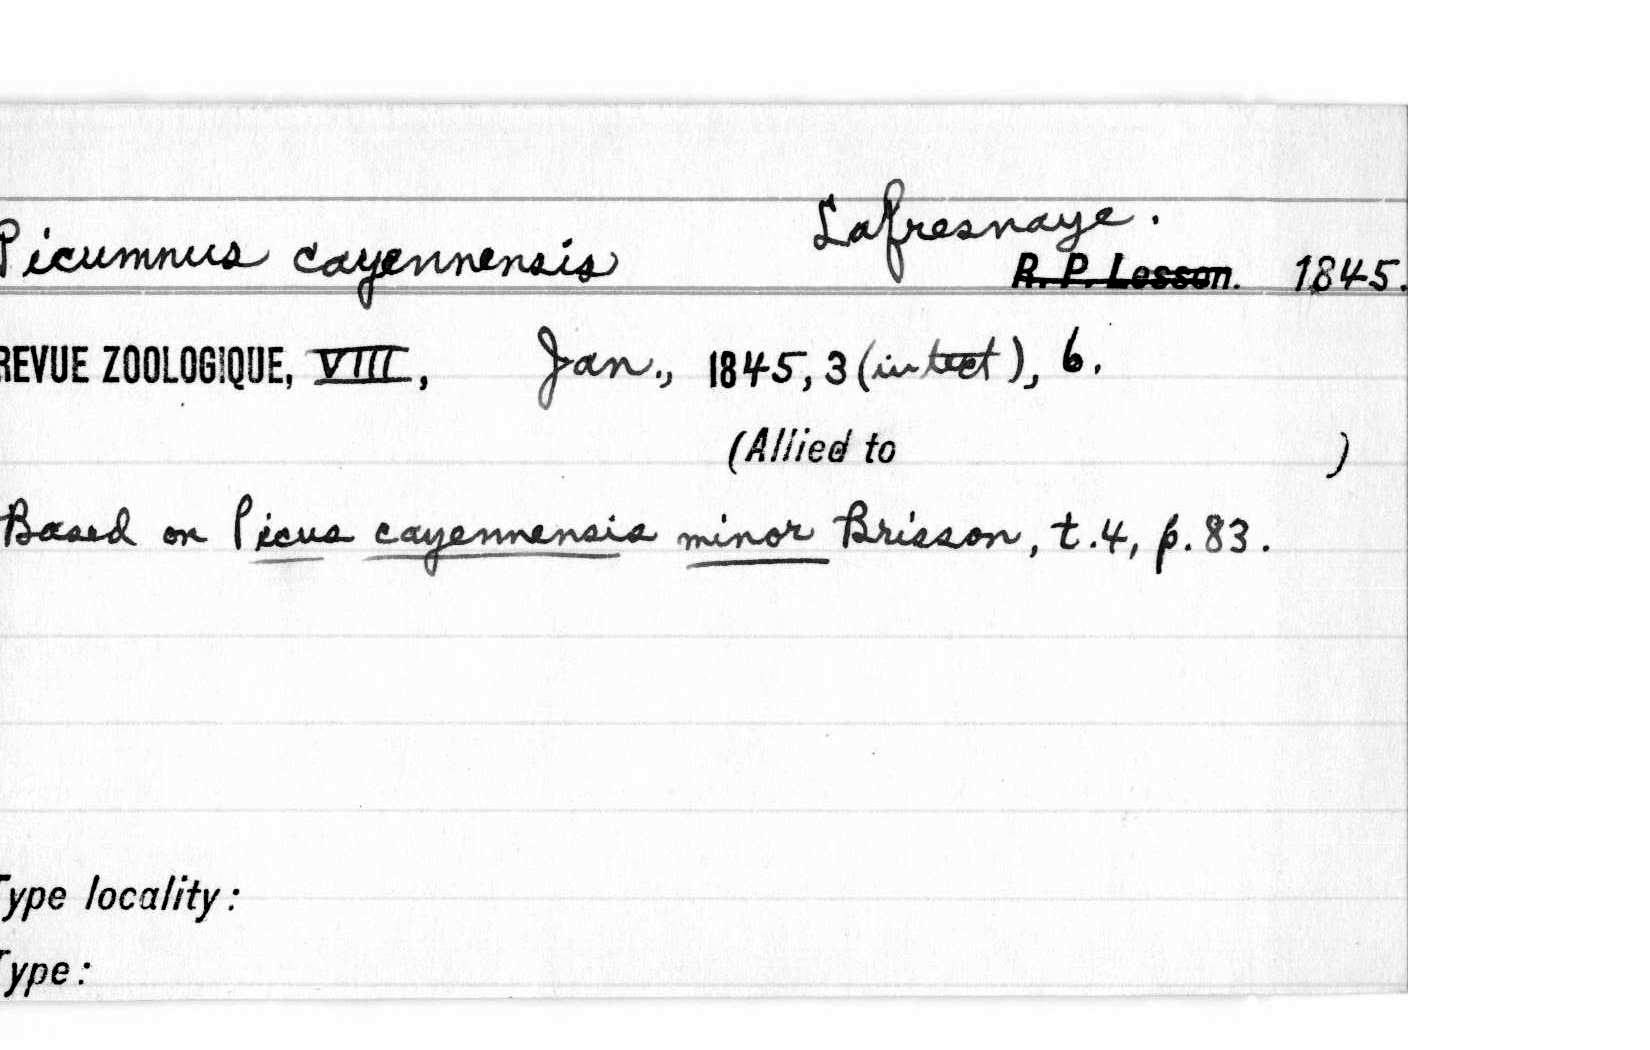 Picumnus cayennensis Lafresnaye.
R. P. Lesson. 1845.
REVUE ZOOLOGIQUE, VIII, Jan., 1845, 3 (in text), 6.
(Allied to )
Based on Picus cayennensis minor Brisson, t.4, p. 83.
Type locality:
Type: